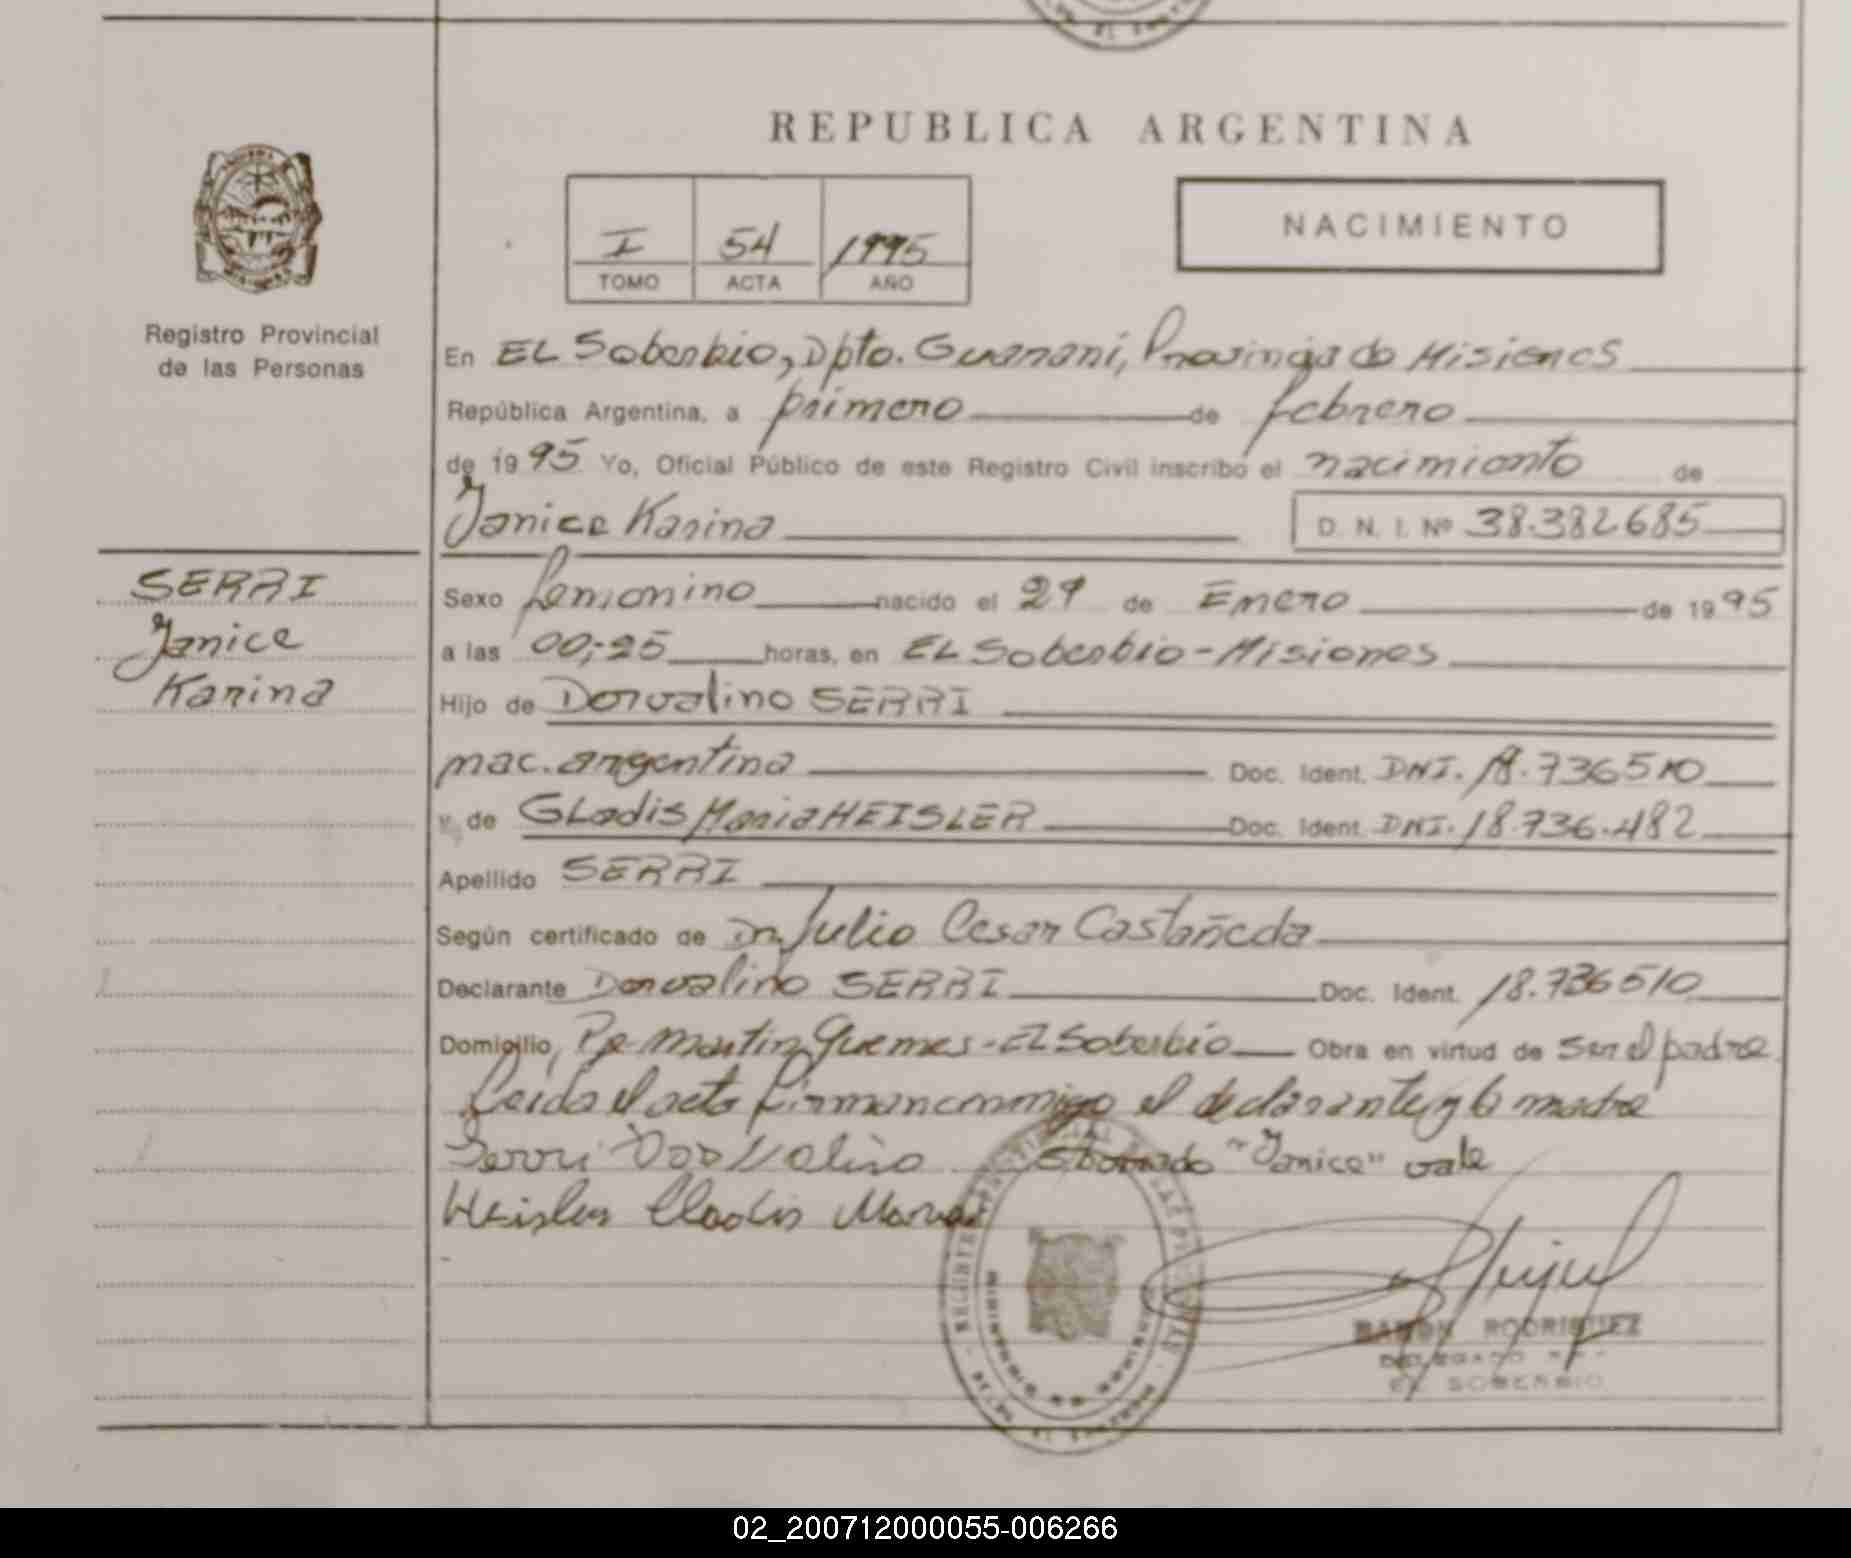 REPUBLICA ARGENTINA
I 54 1995
TOMO ACTA AÑO
NACIMIENTO
Registro Provincial
de las Personas
En EL Soberbio, Dpto. Guarani, Provincia de Misiones
República Argentina, a primero de febrero
de 1995 Yo, Oficial Público de este Registro Civil inscribo el nacimiento de
Janice Karina D. N. I. Nº 38.382685
SERRI
Janice
Karina
Sexo femenino nacido el 29 de Enero de 1995
a las 00:25 horas, en EL Soberbio - Misiones
Hijo de Dorvalino SERRI
nac. argentina Doc. Ident. DNI. 18.736510
y de GLadis Maria HEISLER Doc. Ident. DNI. 18.736.482
Apellido SERRI
Según certificado de Dr. Julio Cesar Castañeda
Declarante Dorvalino SERRI Doc. Ident. 18.736510
Domicilio, Pje Martin Guemes - EL Soberbio Obra en virtud de ser el padre
Leida el acta firman conmigo el declarante y la madre
Serri Dorvalino "Janice" vale
Heisler Gladis Maria
RAMON RODRIGUEZ
DELEGADO
EL SOBERBIO
02_200712000055-006266